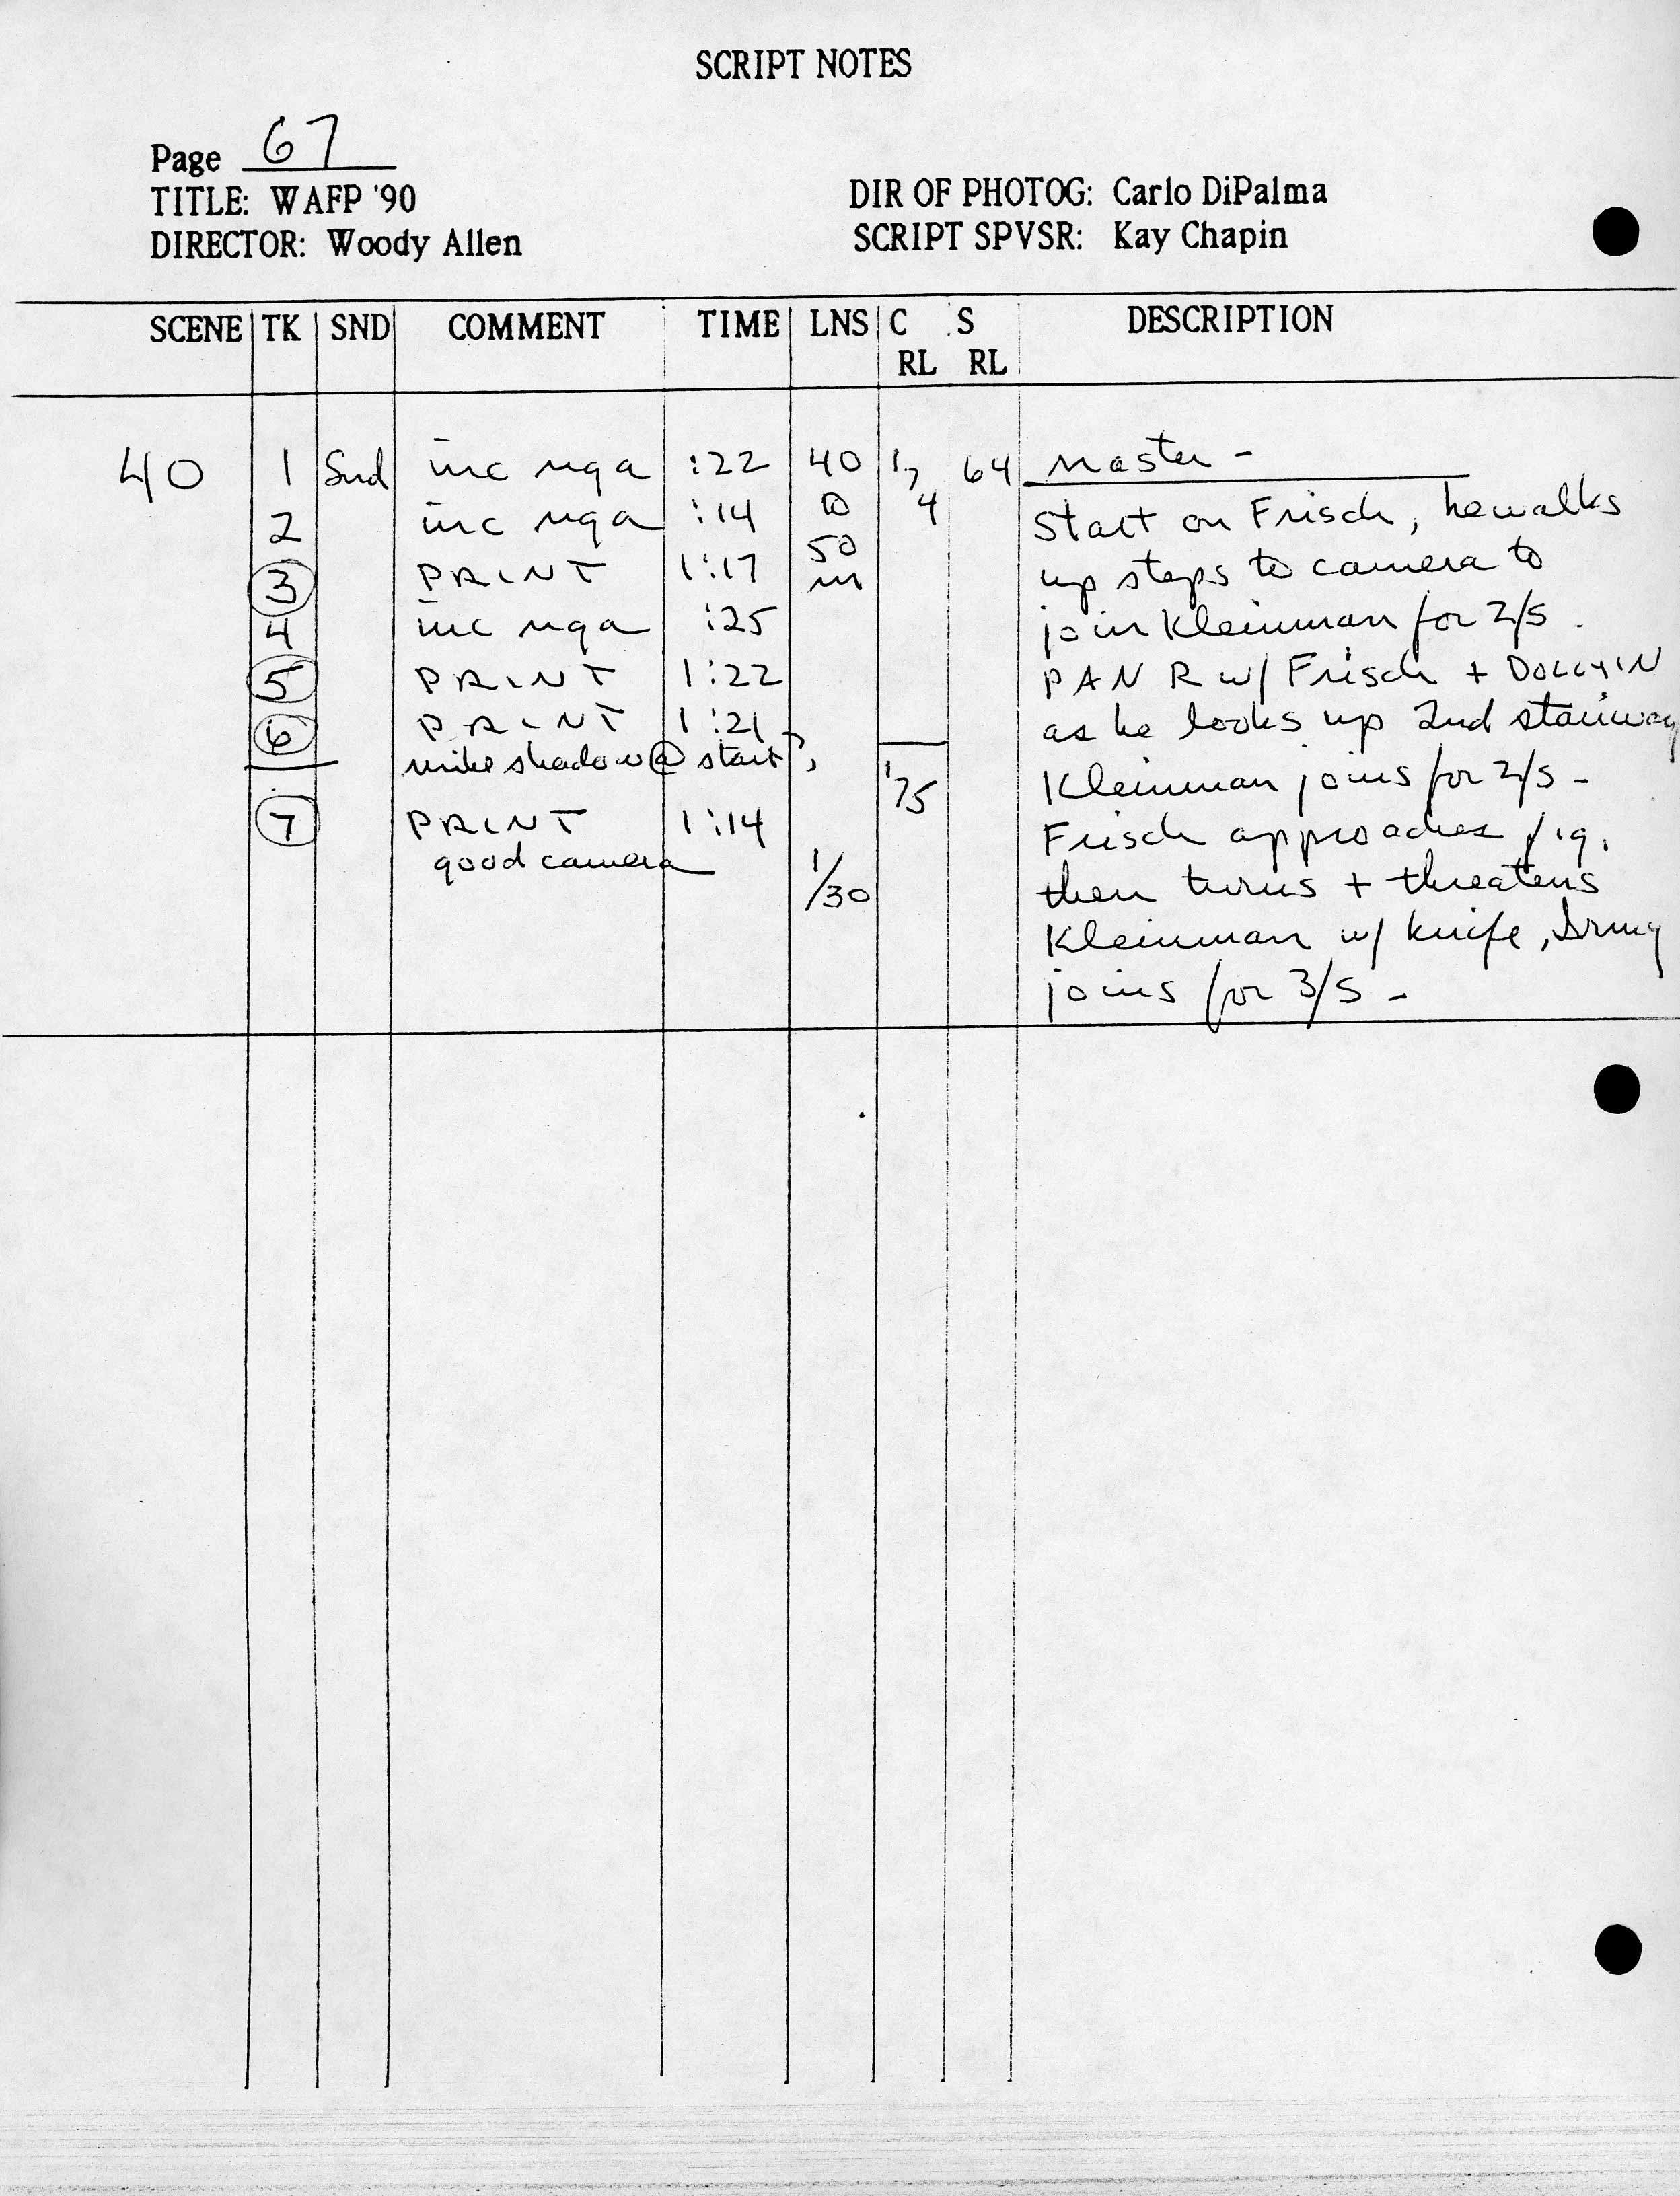 SCRIPT NOTES
Page 67
TITLE: WAFP '90
DIRECTOR: Woody Allen
DIR OF PHOTOG: Carlo DiPalma
SCRIPT SPVSR: Kay Chapin
SCENE TK SND COMMENT TIME LNS C RL S RL DESCRIPTION
40 1 Snd inc nga :22 40 1, 64 Master -
2 inc nga :14 to 4 Start on Frisch, he walks
3 PRINT 1:17 50 up steps to camera to
m
4 inc nga :25 join Kleinman for 2/S.
5 PRINT 1:22 PAN R w/ Frisch + DOLLY IN
6 PRINT 1:21 as he looks up 2nd stairway
mike shadow @ start ?, 1/5 Kleinman joins for 2/S -
7 PRINT 1:14 Frisch approaches f.g.
good camera 1/30 then turns + threatens
Kleinman w/ knife, Irmy
joins for 3/S -